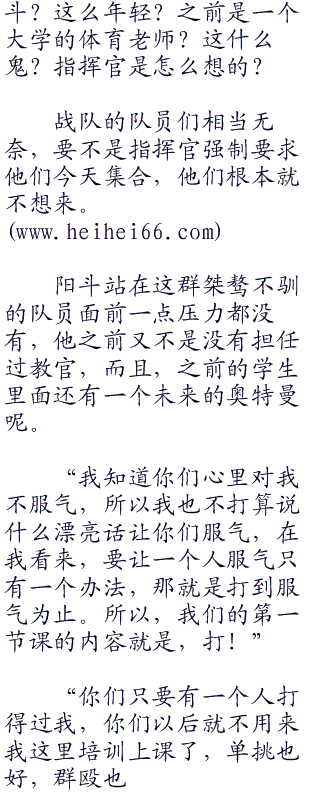 斗？这么年轻？之前是一个
大学的体育老师？这什么
鬼？指挥官是怎么想的？
战队的队员们相当无
奈，要不是指挥官强制要求
他们今天集合，他们根本就
不想来。
(www.heihei66.com)
阳斗站在这群桀骜不驯
的队员面前一点压力都没
有，他之前又不是没有担任
过教官，而且，之前的学生
里面还有一个未来的奥特曼
呢。
“我知道你们心里对我
不服气，所以我也不打算说
什么漂亮话让你们服气，在
我看来，要让一个人服气只
有一个办法，那就是打到服
气为止。所以，我们的第一
节课的内容就是，打！”
“你们只要有一个人打
得过我，你们以后就不用来
我这里培训上课了，单挑也
好，群殴也